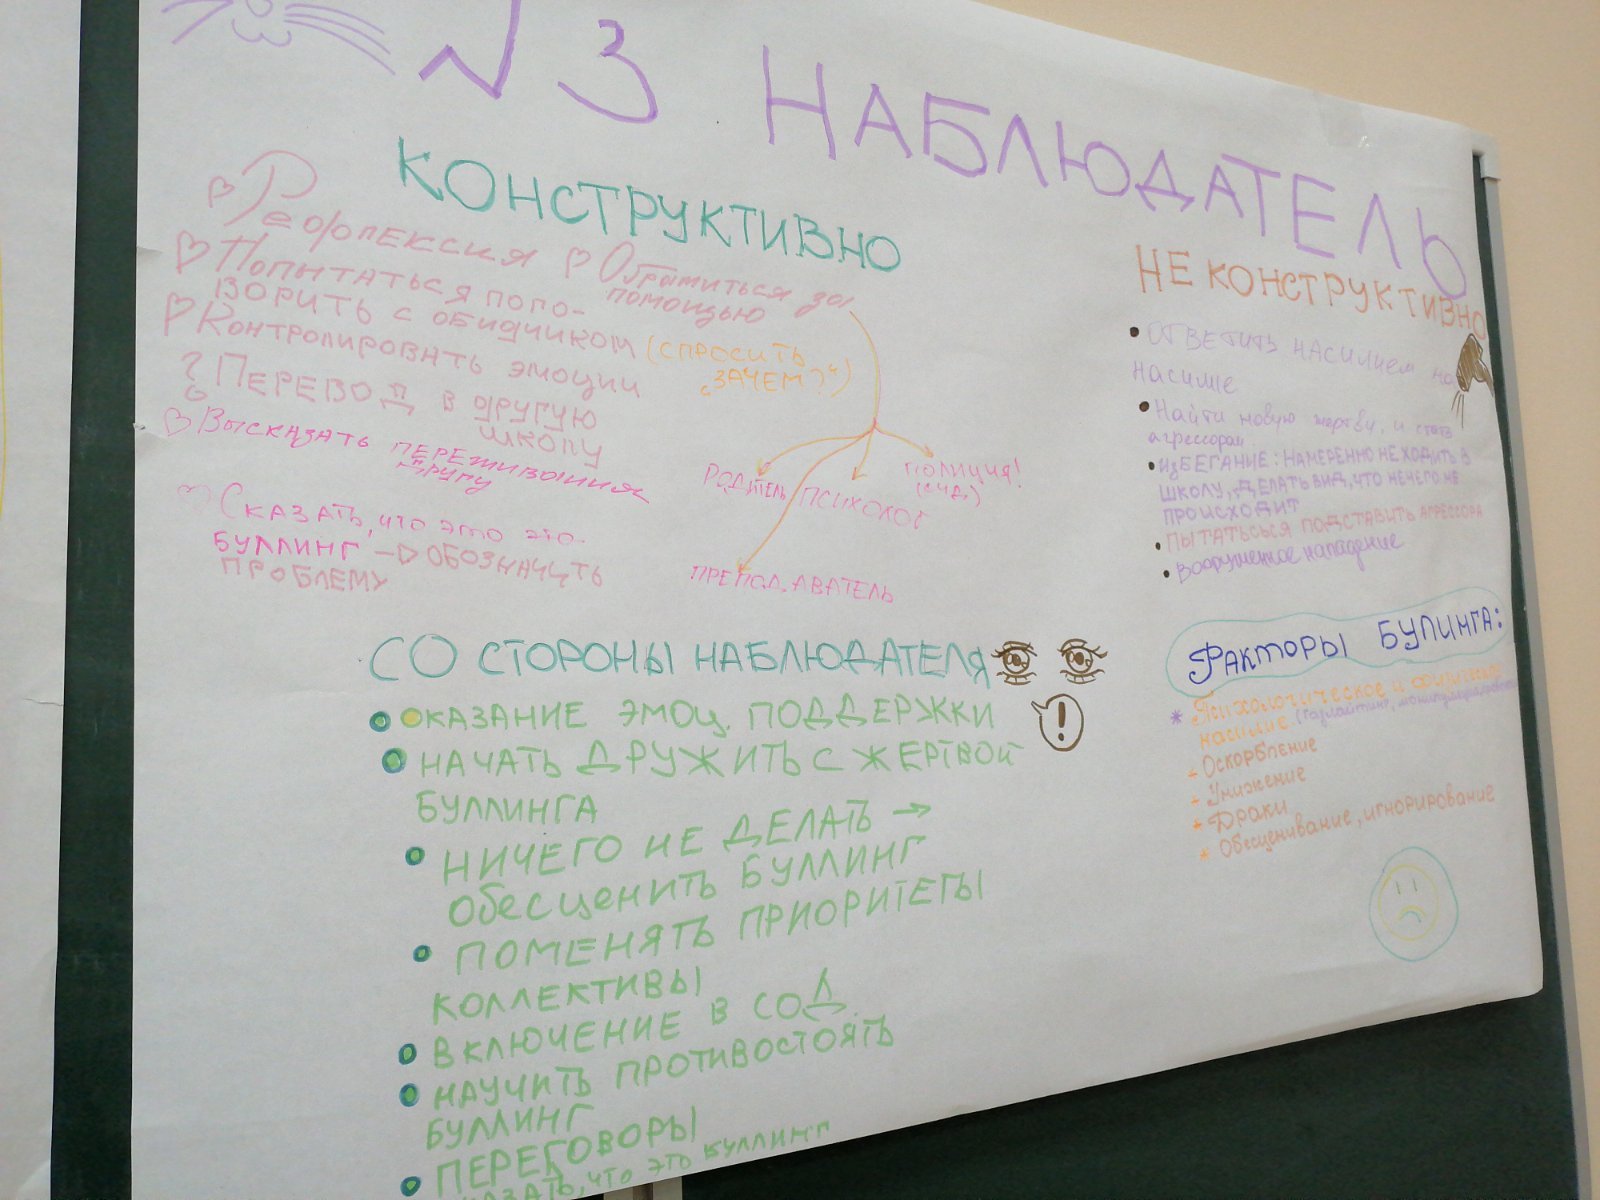 √3 НАБЛЮДАТЕЛЬ
КОНСТРУКТИВНО
Рефлексия
Попытаться погово-
ворить с обидчиком (спросить
„ЗАЧЕМ?“)
Контролировать эмоции
? Перевод в другую
школу
Высказать переживания
другу
Сказать, что это это
буллинг → обозначить
проблему
Обратиться за
помощью
РОДИТЕЛЬ
ПСИХОЛОГ
полиция!
ПРЕПОДАВАТЕЛЬ
НЕ КОНСТРУКТИВНО
• ответить насилием на
насилие
• Найти новую жертву, и стать
агрессором
• избегание: намеренно не ходить в
школу, делать вид, что нечего не
происходит
• пытаться подставить агрессора
• Вооруженное нападение
ФАКТОРЫ БУЛИНГА:
* Психологическое и физическое
насилие (газлайтинг,
+ Оскорбление
+ Унижение
+ Драки
* Обесценивание, игнорирование
СО СТОРОНЫ НАБЛЮДАТЕЛЯ
• ОКАЗАНИЕ ЭМОЦ. ПОДДЕРЖКИ
!
• НАЧАТЬ ДРУЖИТЬ С ЖЕРТВОЙ
БУЛЛИНГА
• НИЧЕГО НЕ ДЕЛАТЬ →
обесценить буллинг
• ПОМЕНЯТЬ ПРИОРИТЕТЫ
КОЛЛЕКТИВЫ
• ВКЛЮЧЕНИЕ В СОД
• НАУЧИТЬ ПРОТИВОСТОЯТЬ
БУЛЛИНГ
• ПЕРЕГОВОРЫ
что это буллинг